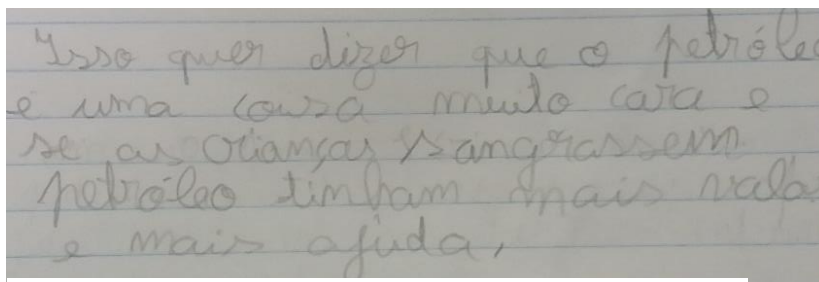 Isso quer dizer que o petróleo
e uma cousa muito cara e
se as crianças sangrassem
petróleo tinham mais valo
e mais ajuda,